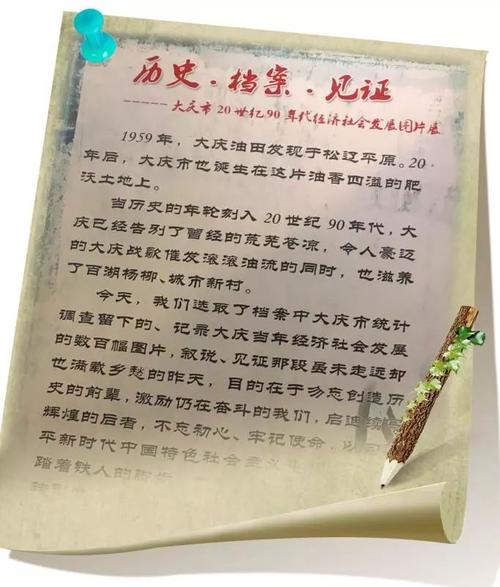 历史·档案·见证
-----大庆市20世纪90年代经济社会发展图片展
1959年，大庆油田发现于松辽平原。20
年后，大庆市也诞生在这片油香四溢的肥
沃土地上。
当历史的年轮刻入20世纪90年代，大
庆已经告别了曾经的荒芜苍凉，令人豪迈
的大庆战歌催发滚滚油流的同时，也滋养
了百湖杨柳、城市新村。
今天，我们选取了档案中大庆市统计
调查留下的、记录大庆当年经济社会发展
的数百幅图片，叙说、见证那段虽未走远却
也满载乡愁的昨天，目的在于勿忘创造历
史的前辈，激励仍在奋斗的我们，启迪续写
辉煌的后者，不忘初心、牢记使命，以习近
平新时代中国特色社会主义
踏着铁人的脚步